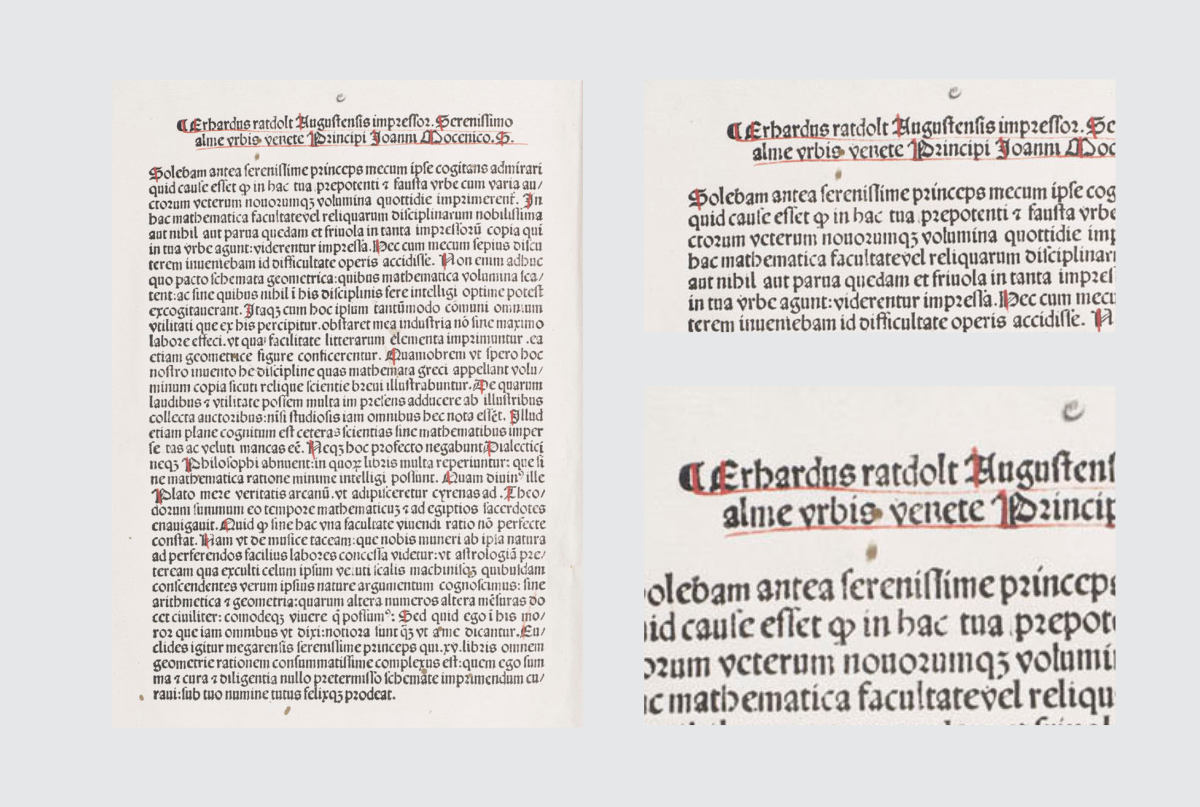 Erhardus ratdolt Augustensis impressor. Serenissimo
alme vrbis venete Principi Joanni Mocenico. S.
Solebam antea serenissime princeps mecum ipse cogitans admirari
quid cause esset ꝙ in hac tua prepotenti ⁊ fausta vrbe cum varia au/
ctorum veterum nouorumqꝫ volumina quottidie imprimerent̃. In
hac mathematica facultatevel reliquarum disciplinarum nobilissima
aut nihil aut parua quedam et friuola in tanta impressorũ copia qui
in tua vrbe agunt:viderentur impressa. Hec cum mecum sepius discu
terem inueniebam id difficultate operis accidisse. Non enim adhuc
quo pacto schemata geometrica:quibus mathematica volumina sca/
tent:ac sine quibus nihil ĩ his disciplinis fere intelligi optime potest
excogitauerant. Itaqꝫ cum hoc ipsum tantũmodo cõmuni omnium
vtilitati que ex his percipitur.obstaret mea industria nõ sine maximo
labore effeci.vt qua facilitate litterarum elementa imprimuntur .ea
etiam geometrice figure conficerentur. Quamobrem vt spero hoc
nostro inuento he discipline quas mathemata greci appellant volu/
minum copia sicuti relique scientie breui illustrabuntur. De quarum
laudibus ⁊ vtilitate possem multa in presens adducere ab illustribus
collecta auctoribus:nisi studiosis iam omnibus hec nota essẽt. Illud
etiam plane cognitum est ceteras scientias sine mathematibus imper
fectas ac veluti mancas eẽ. Neqꝫ hoc profecto negabunt Dialectici
neqꝫ Philosophi abnuent:in quoꝝ libris multa reperiuntur: que si
ne mathematica ratione minime intelligi possunt. Quam diuinꝰ ille
Plato mere veritatis arcanũ.vt adipisceretur cyrenas ad .Theo/
dorum summum eo tempore mathematicuꝫ ⁊ ad egiptios sacerdotes
enauigauit. Quid ꝙ sine hac vna facultate viuendi ratio nõ perfecte
constat. Nam vt de musice taceam:que nobis muneri ab ipsa natura
ad perferendos facilius labores concessa videtur:vt astrologiã pre/
teream qua exculti celum ipsum veluti scalis machinisqꝫ quibusdam
conscendentes verum ipsius nature argumentum cognoscimus: sine
arithmetica ⁊ geometria:quarum altera numeros altera mẽsuras do
cet ciuiliter: comodeqꝫ viuere q̃ possumꝰ: Sed quid ego ĩ his mo/
ror que iam omnibus vt dixi:notiora sunt q̃ꝫ vt a me dicantur. Eu/
clides igitur megarensis serenissime princeps qui.xv.libris omnem
geometrie rationem consummatissime complexus est:quem ego sum
ma ⁊ cura ⁊ diligentia nullo pretermisso schemate imprimendum cu/
raui:sub tuo numine tutus felixqꝫ prodeat.
Erhardus ratdolt Augustensis impressor. Se
alme vrbis venete Principi Joanni Moc
Solebam antea serenissime princeps mecum ipse cog
quid cause esset ꝙ in hac tua prepotenti ⁊ fausta vrbe
ctorum veterum nouorumqꝫ volumina quottidie imp
hac mathematica facultatevel reliquarum disciplinar
aut nihil aut parua quedam et friuola in tanta impres
in tua vrbe agunt:viderentur impressa. Hec cum mecu
terem inueniebam id difficultate operis accidisse. N
Erhardus ratdolt Augustens
alme vrbis venete Princip
olebam antea serenissime princeps
id cause esset ꝙ in hac tua prepot
orum veterum nouorumqꝫ volumi
c mathematica facultatevel reliqu